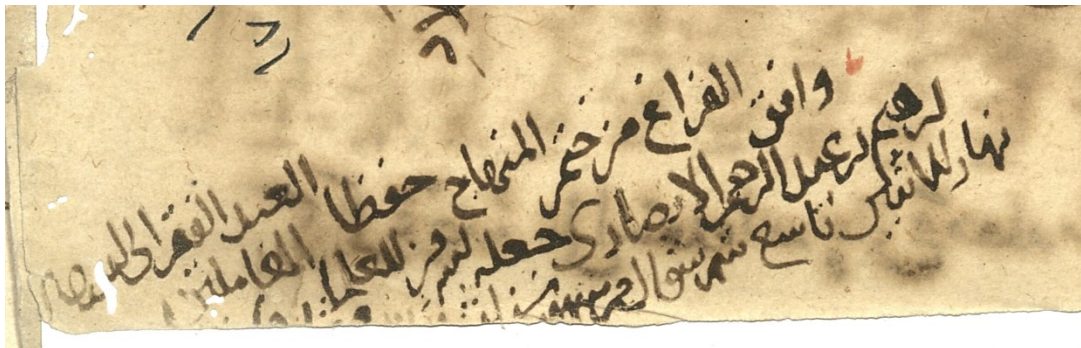 وافق الفراغ من ختم المنهاج حفظا العبد الفقير الى الله
ابرهيم بن عبد الرحمن الانصارى جعله الله من العلما العاملين
نهار الاثنين تاسع شهر شوال من سنة